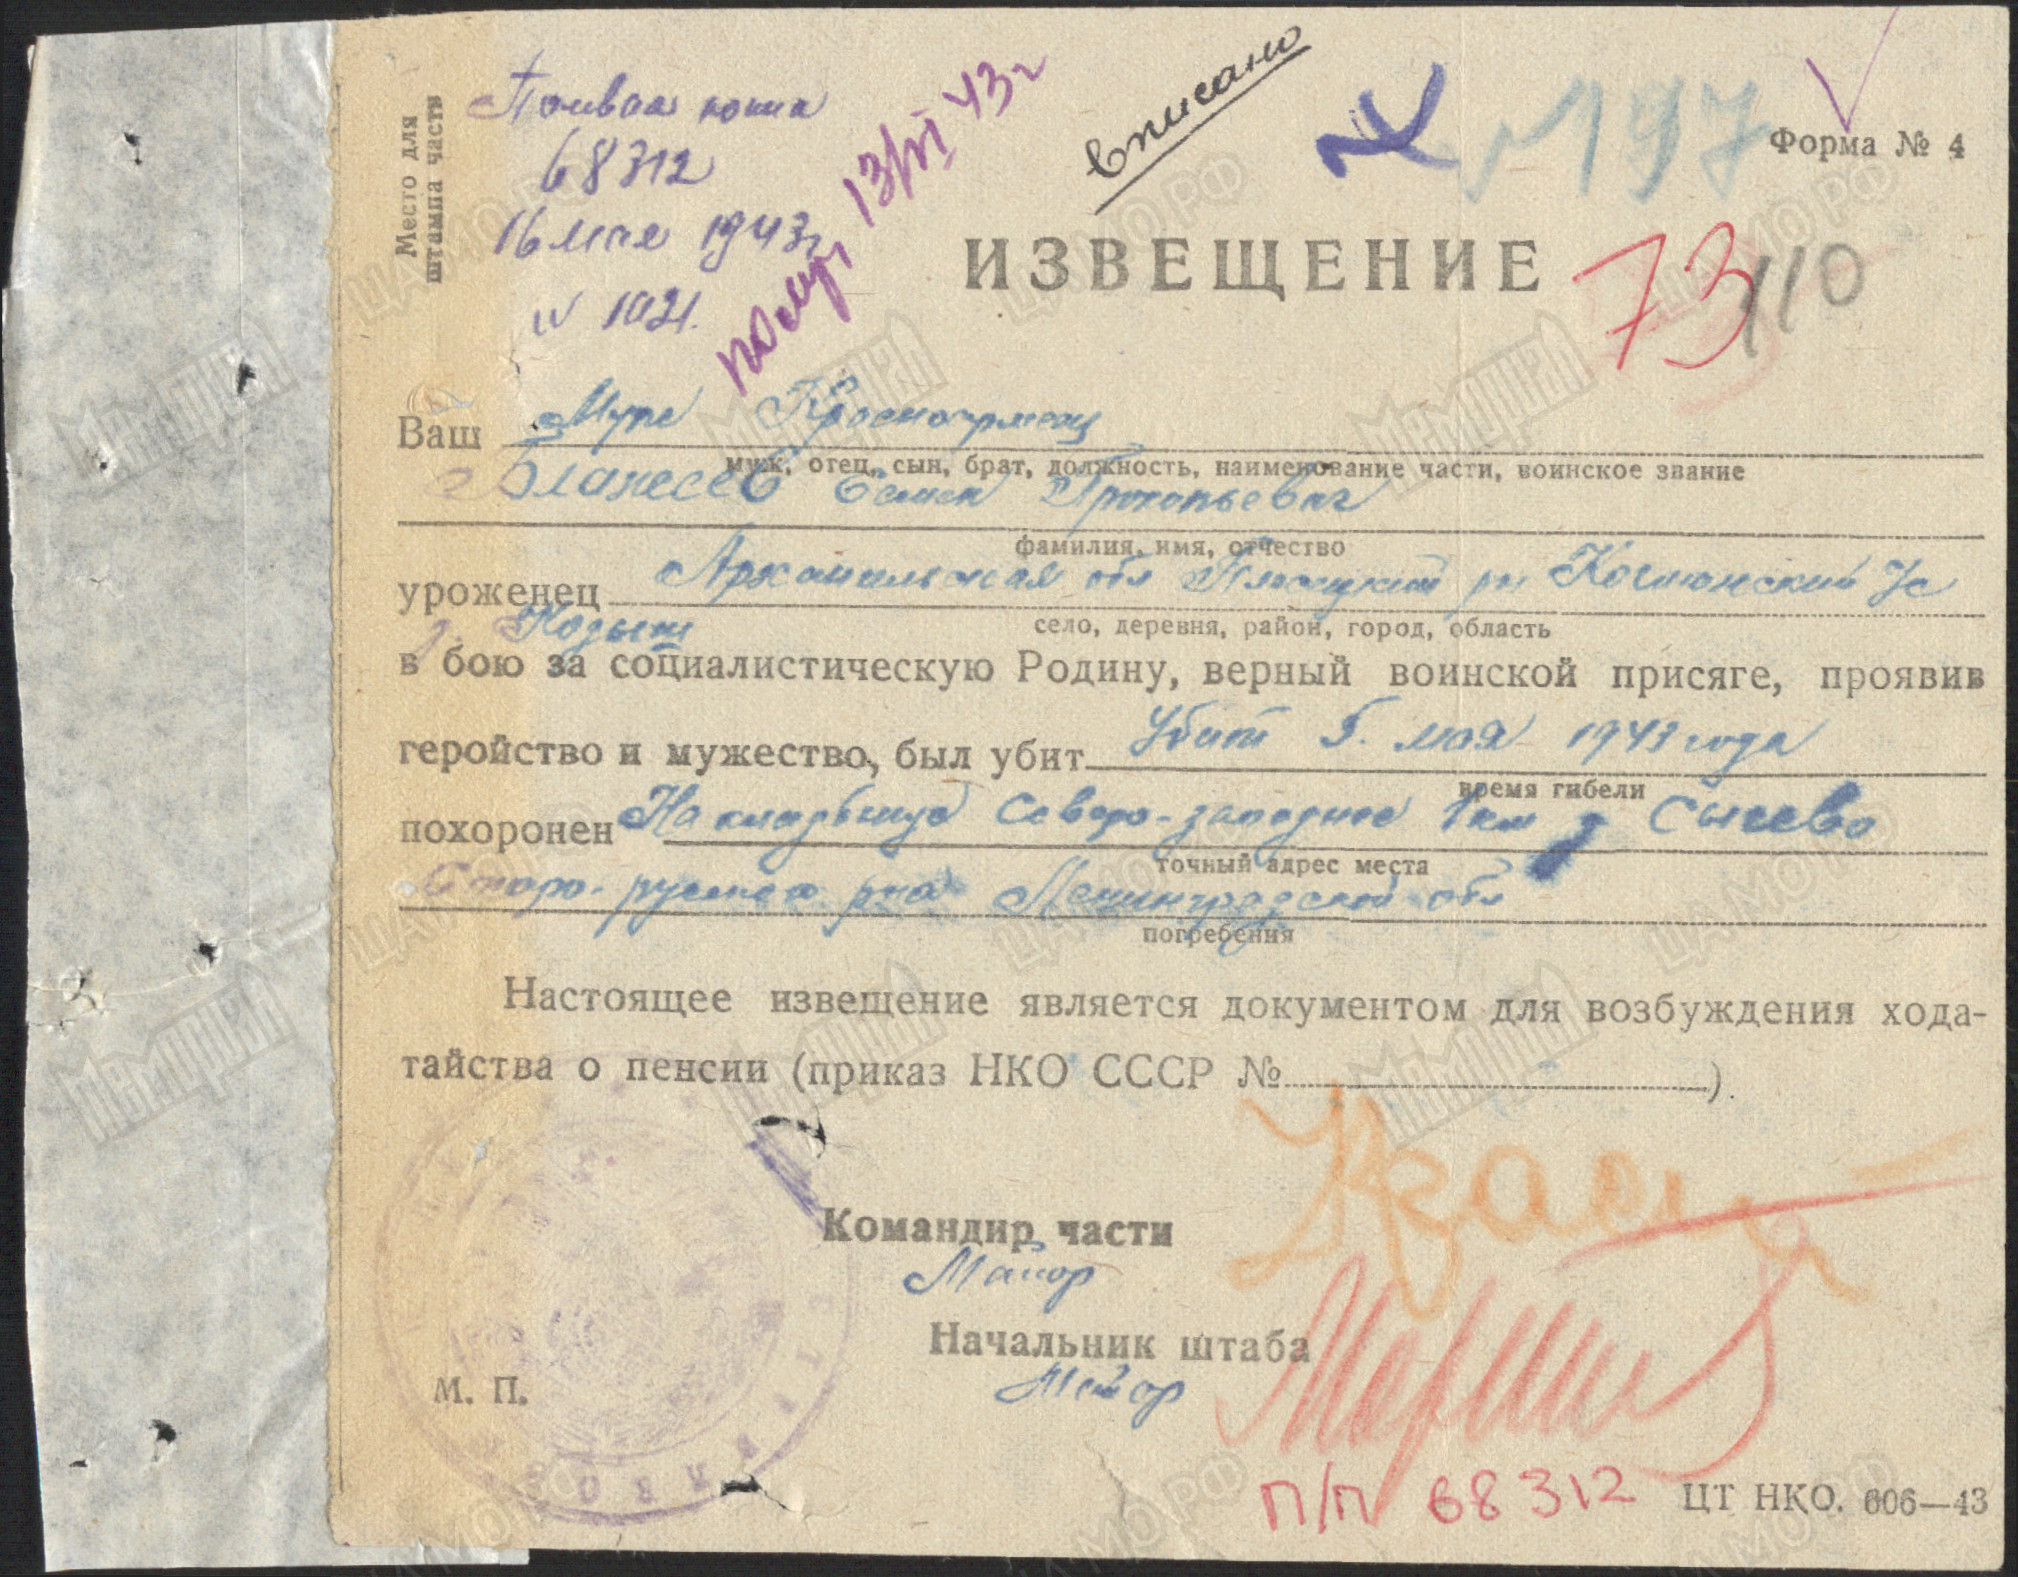 Место для
штампа части
68312
16 мая 1943г
№ 1021.
13/VI 43г
вписано
№ 197
Форма № 4
ИЗВЕЩЕНИЕ
73
110
Ваш Муж Красноармеец
муж, отец, сын, брат, должность, наименование части, воинское звание
Семен Прокопьевич
фамилия, имя, отчество
уроженец Архангельская обл рн
село, деревня, район, город, область
в бою за социалистическую Родину, верный воинской присяге, проявив
геройство и мужество, был убит Убит 5. мая 1943 года
время гибели
похоронен На кладбище Северо-западнее 1 км д Сычево
точный адрес места
Старо-русского рна Ленинградской обл
погребения
Настоящее извещение является документом для возбуждения хода-
тайства о пенсии (приказ НКО СССР № ).
Командир части
Майор
Начальник штаба
Майор
М. П.
П/П 68312
ЦТ НКО. 606—43
ЦАМО РФ
Мемориал